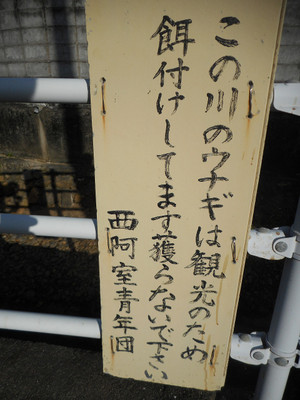 この川のウナギは観光のため
餌付けしてます獲らないで下さい
西阿室青年団